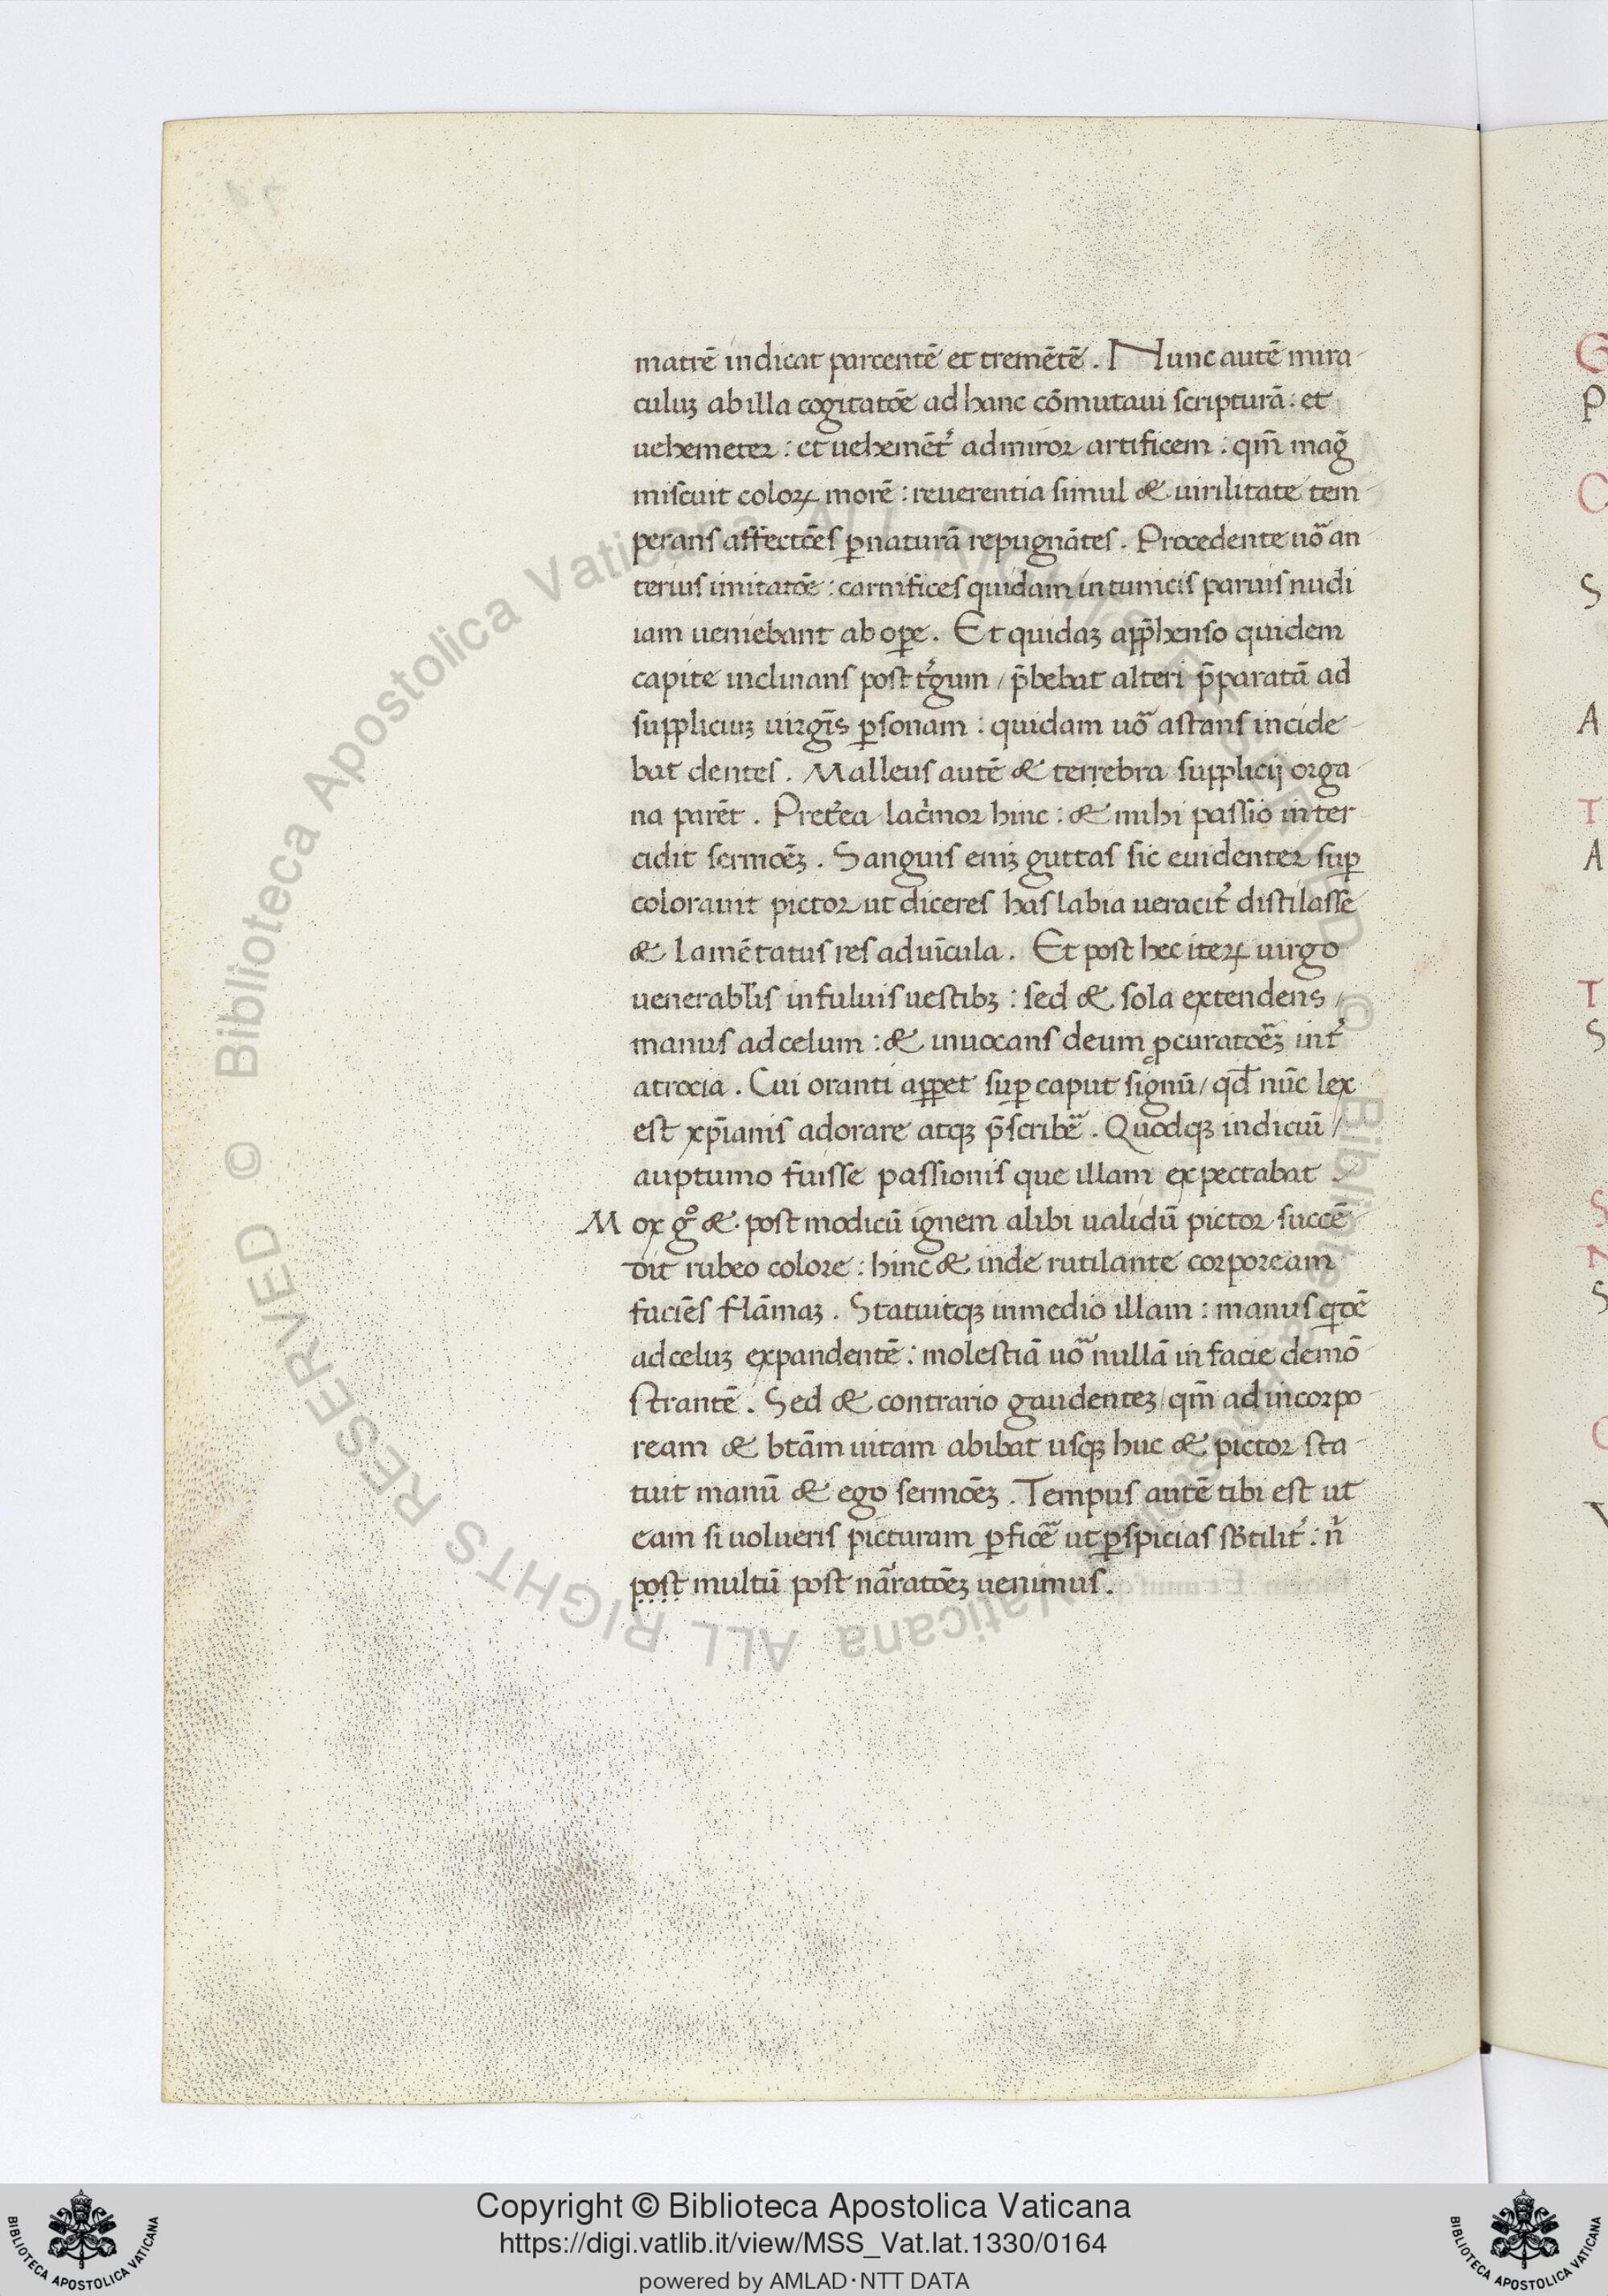 matrē indicat parcentē et tremētē. Nunc autē mira
culuꝫ ab illa cogitatōe ad hanc cōmutaui scripturā. et
uehemeter: et uehemēt᷑ admiror artificem: qm̄ mag̃
miscuit coloꝝ morē: reuerentia simul & uirilitate tem
perans affectōes ꝑ naturā repugnātes. Procedente uõ an
terius imitatōe: carnifices quidam in tunicis paruis nudi
iam ueniebant ab oꝑe. Et quidaꝫ app̄henso quidem
capite inclinans post t᷑gum / p̄bebat alteri p̄paratā ad
suppliciuꝫ uirgīs ꝑsonam: quidam uõ astans incide
bat dentes. Malleus autē & terrebra supplicij orga
na parēt. Pret᷑ea lac᷑mor hinc: & mihi passio inter
cidit sermōeꝫ. Sanguis eniꝫ guttas sic euidenter suꝑ
colorauit pictor ut diceres has labia ueracit᷑ distilasse
& lamētatus res ad uīcula. Et post hec iteꝝ uirgo
uenerabłis in fuluis uestibꝫ: sed & sola extendens /
manus ad celum: & inuocans deum ꝓcuratōeꝫ int᷑
atrocia. Cui oranti apꝑet suꝑ caput signū / qđ nūc lex
est xp̄ianis adorare atqꝫ p̄scribẽ. Quodqꝫ indiciū /
auptumo fuisse passionis que illam expectabat.
Mox gͦ & post modicū ignem alibi ualidū pictor succē
dit rubeo colore: hinc & inde rutilante corpoream
faciēs flāmaꝫ. Statuitqꝫ in medio illam: manus qͥdē
ad celuꝫ expandentē: molestiā uõ nullā in facie demō
strantē. Sed & contrario gaudenteꝫ / qm̄ ad incorpo
ream & btām uitam abibat usqꝫ huc & pictor sta
tuit manū & ego sermōeꝫ. Tempus autē tibi est ut
eam si uolueris picturam ꝑficẽ ut ꝑspicias sbtilit᷑: n̄
post multū post narratōeꝫ uenimus.
G
P
C
S
A
T
A
T
S
S
N
S
C
Copyright © Biblioteca Apostolica Vaticana
https://digi.vatlib.it/view/MSS_Vat.lat.1330/0164
powered by AMLAD·NTT DATA
BIBLIOTECA APOSTOLICA VATICANA
BIBLIOTECA APOSTOLICA VATICANA
© Biblioteca Apostolica Vaticana ALL RIGHTS RESERVED © Biblioteca Apostolica Vaticana ALL RIGHTS RESERVED